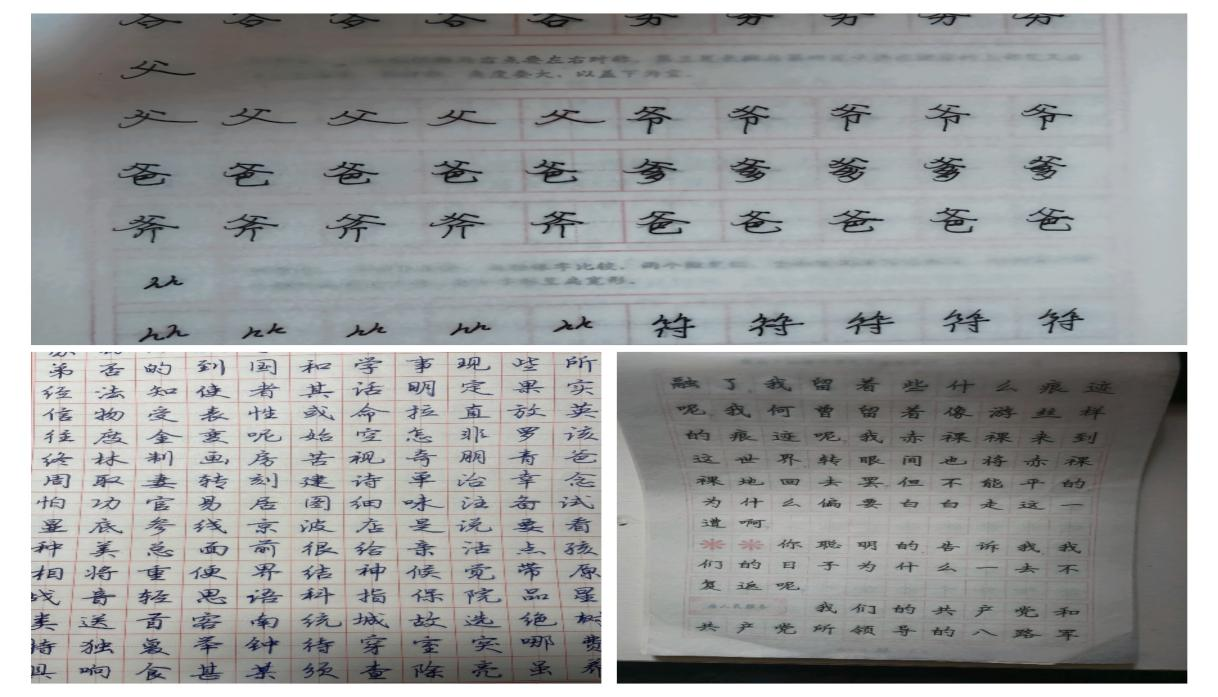 父
父 父 父 父 父 爷 爷 爷 爷 爷
爸 爸 爸 爸 爸 爹 爹 爹 爹 爹
斧 斧 斧 斧 斧 爸 爸 爸 爸 爸
符 符 符 符 符
第 否 的 到 国 和 学 事 现 些 所
经 法 知 使 者 其 话 明 定 果 实
信 物 受 表 性 或 命 拉 直 放 英
往 度 金 童 呢 始 空 怎 非 罗 该
终 林 制 画 房 苦 视 奇 朋 青 爸
周 取 妻 转 刻 建 诗 单 治 幸 念
怕 功 官 易 居 图 细 味 注 备 试
星 底 参 线 京 波 店 是 说 要 看
种 美 总 面 前 很 给 亲 活 点 孩
相 将 重 便 界 结 神 候 觉 带 原
战 音 轻 思 语 科 指 保 院 品 星
类 送 首 客 南 统 城 故 选 绝 树
待 独 复 举 钟 待 穿 室 突 哪 费
具 响 食 甚 某 须 查 除 亮 虽 养
融了,我留着些什么痕迹
呢,我何曾留着像游丝样
的痕迹呢,我赤裸裸来到
这世界转眼间也将赤裸
裸地回去罢,但不能平的
为什么偏要白白走这一
道啊
你聪明的告诉我我
们的日子为什么一去不
复返呢
为人民服务 我们的共产党和
共产党所领导的八路军